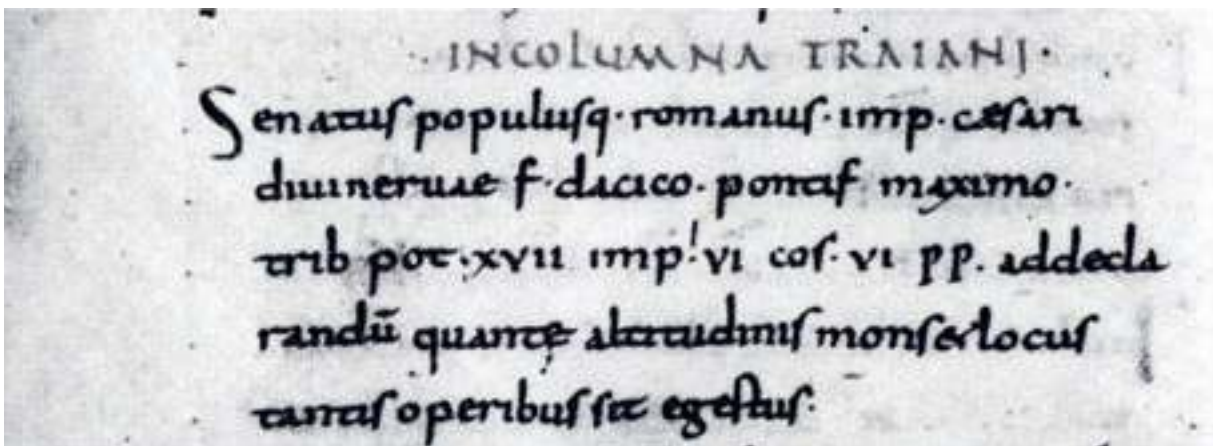 IN COLUMNA TRAIANI·
Senatus populusq· romanus· imp· cæsari
diui neruae f· dacico· pontif maximo·
trib pot· xvii imp· vi cos· vi pp. ad decla
randū quantę altitudinis mons & locus
tantis operibus sit egestus·